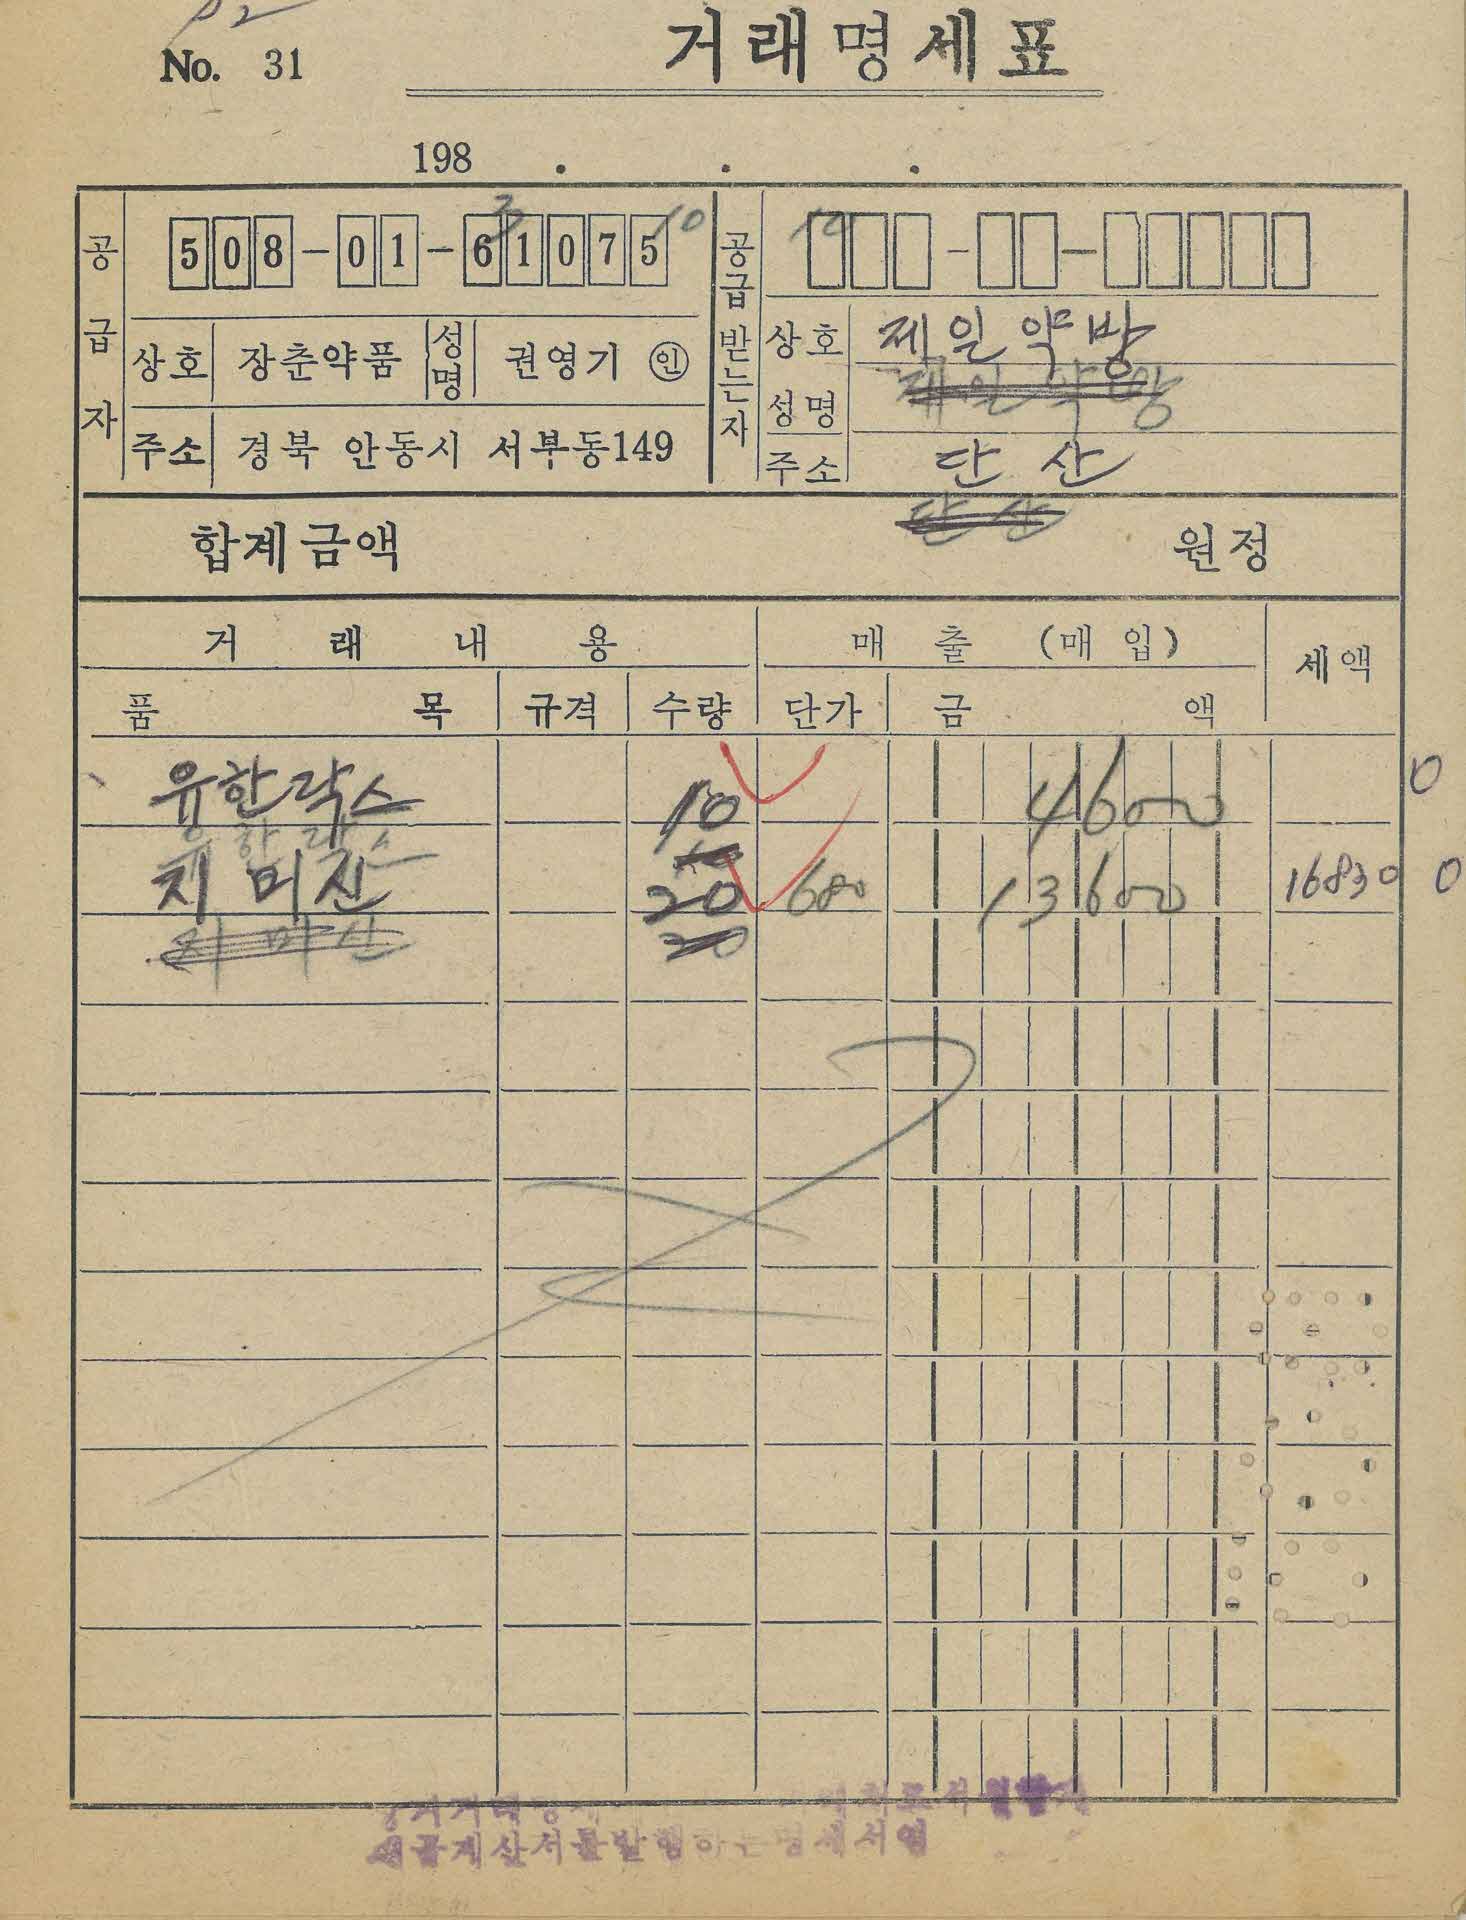 No. 31
거래명세표
198 . . .
3 10 10
공급자
508-01-61075
상호 장춘약품 성명 권영기 인
주소 경북 안동시 서부동149
공급받는자
상호 제일약방
성명 제일약방
주소 단산
단산
합계금액 원정
거래내용 매출(매입) 세액
품목 규격 수량 단가 금액
유한락스 10 4600 0
유한락스 10
지미진 20 680 13600 16830 0
지미산 20
세금계산서를발행하는명세서임